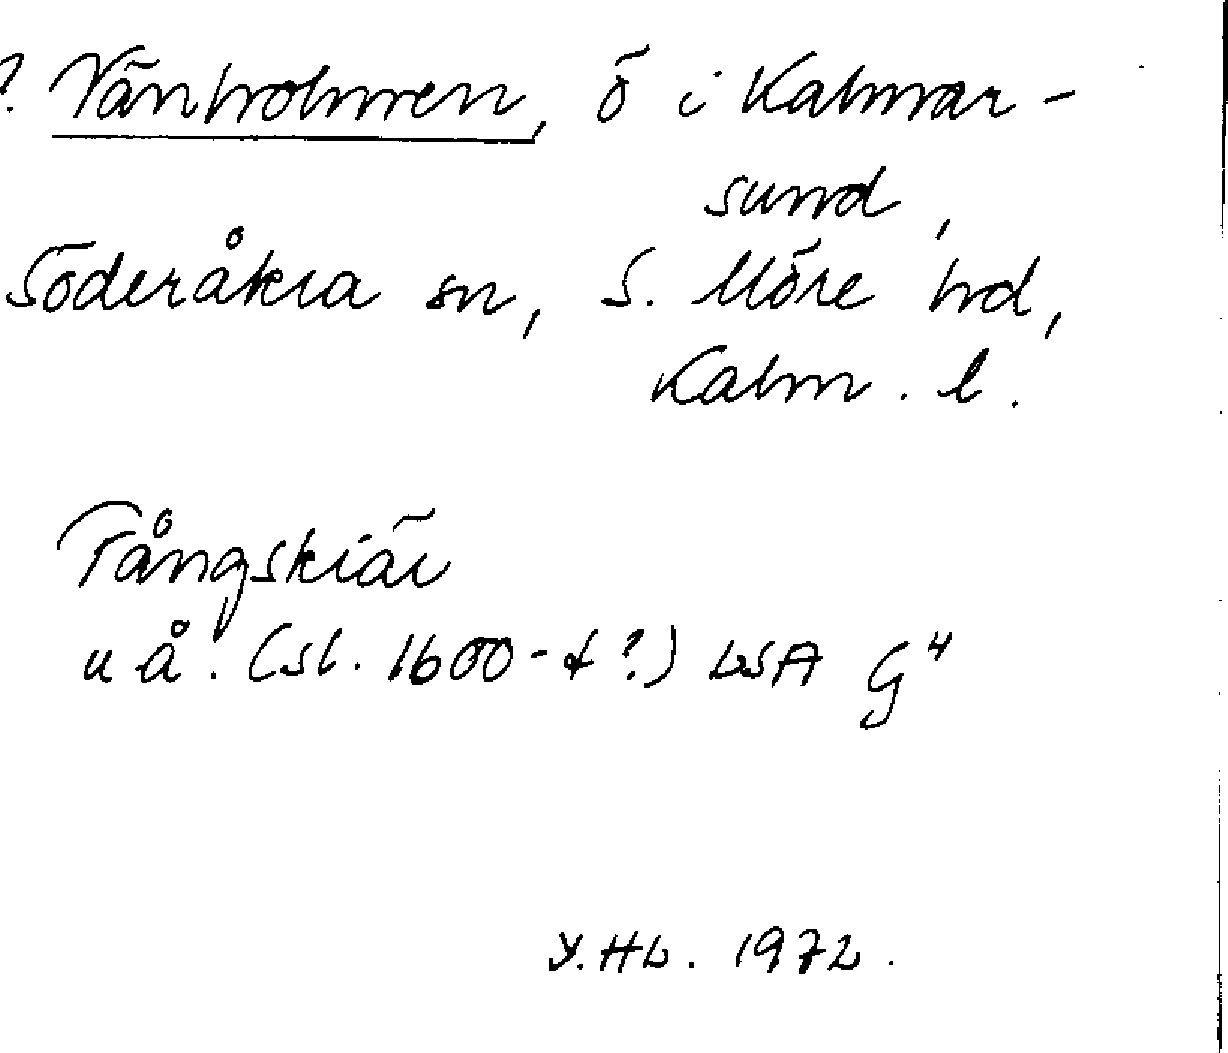 ? Vänholmen, ö i Kalmar-
sund,
Söderåkra sn, S. Möre hd,
Kalm. l.
Tångskiär
u å. (sl. 1600-t?) LSA G4
Y.HL. 1972.